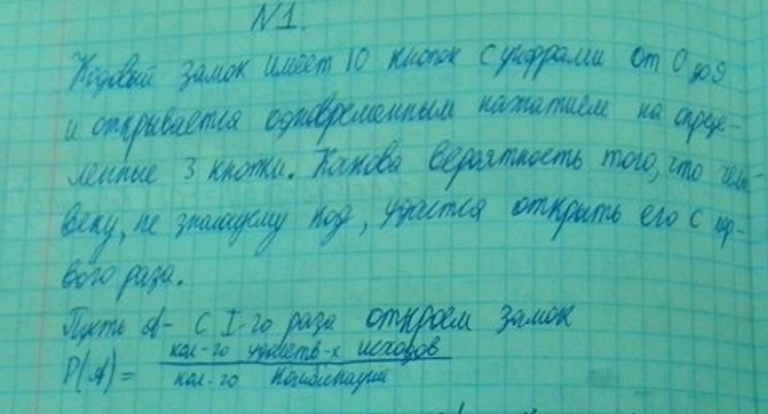 N1.
Кодовый замок имеет 10 кнопок с цифрами от 0 до 9
и открывается одновременным нажатием на опреде-
ленные 3 кнопки. Какова вероятность того, что чело-
веку, не знающему код, удастся открыть его с пер-
вого раза.
Пусть A - с I-го раза откроем замок
P(A) = кол-го удовлетв-х исходов
кол-го комбинации